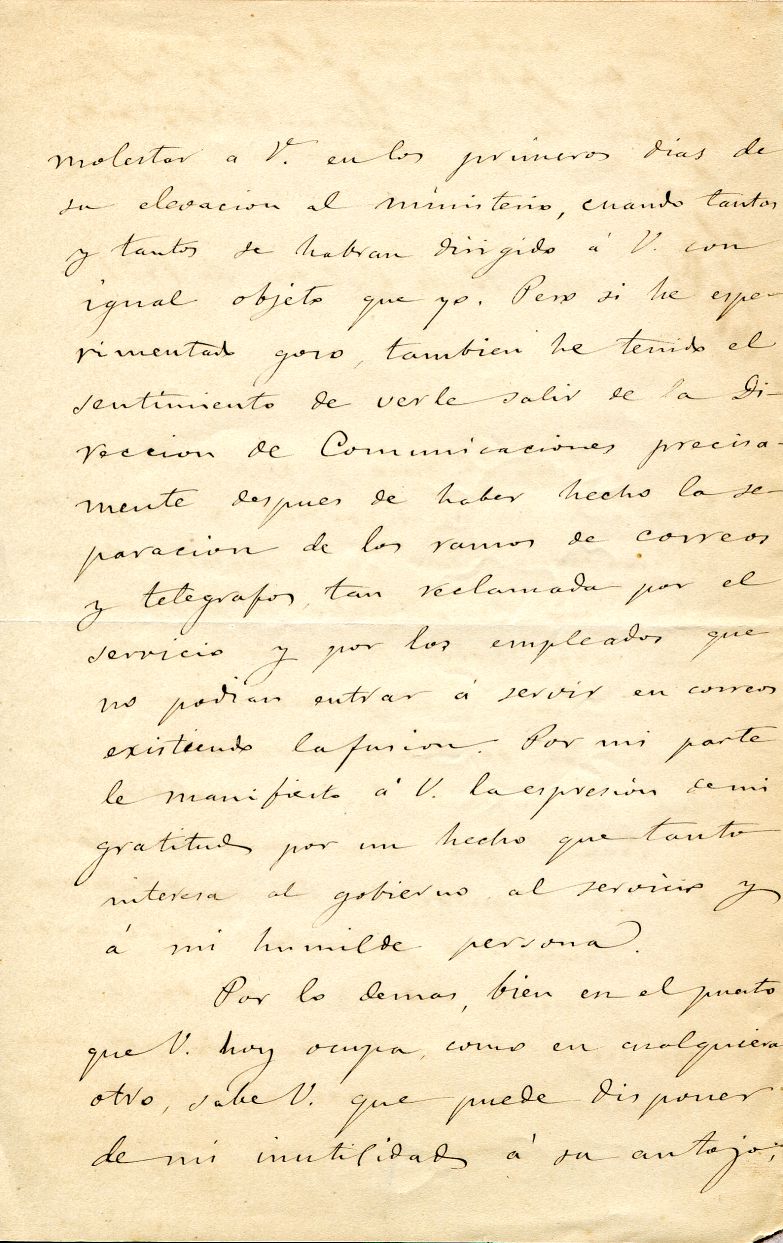 molestar a V. en los primeros dias de
su elevacion al ministerio, cuando tantos
y tantos se habran dirigido á V. con
igual objeto que yo. Pero si he espe-
rimentado gozo, tambien he tenido el
sentimiento de verle salir de la Di-
reccion de Comunicaciones precisa-
mente despues de haber hecho la se-
paracion de los ramos de correos
y telegrafos, tan reclamada por el
servicio y por los empleados que
no podian entrar á servir en correos
existiendo la fusion. Por mi parte
le manifiesto á V. la espresión de mi
gratitud por un hecho que tanto
interesa al gobierno al servicio y
á mi humilde persona.
Por lo demas, bien en el puesto
que V. hoy ocupa, como en cualquiera
otro, sabe V. que puede disponer
de mi inutilidad á su antojo;